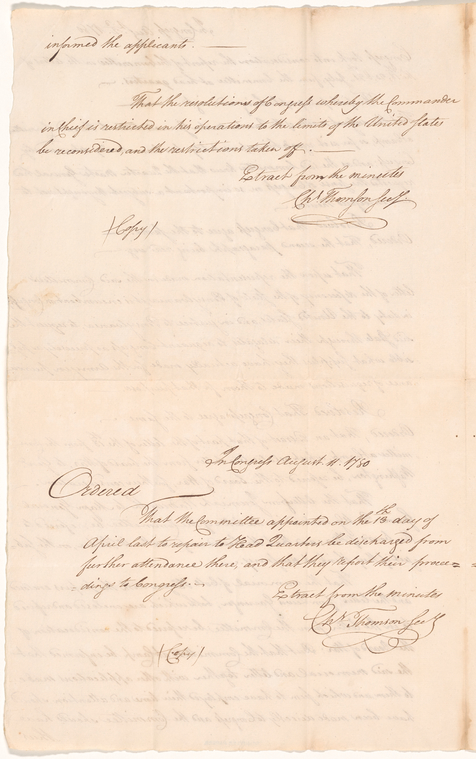 informed the applicants. —
That the resolutions of Congress whereby the Commander
in Chief is restricted in his operations to the limits of the United States
be reconsidered, and the restrictions taken off. —
Extract from the minutes
Chs. Thomson Secy
(Copy)
In Congress August 11. 1780
Ordered
That the Committee appointed on the 13th day of
April last to repair to Head Quarters be discharged from
further attendance there, and that they report their procee=
dings to Congress.
Extract from the minutes
Chs. Thomson Secy
(Copy)